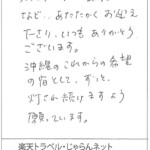 など、あたたかく お迎え
下さり、いつも ありがとう
ございます。
沖縄の これからの 希望
の宿として、ずっと
灯され続けますよう
願っています。
楽天トラベル・じゃらんネット